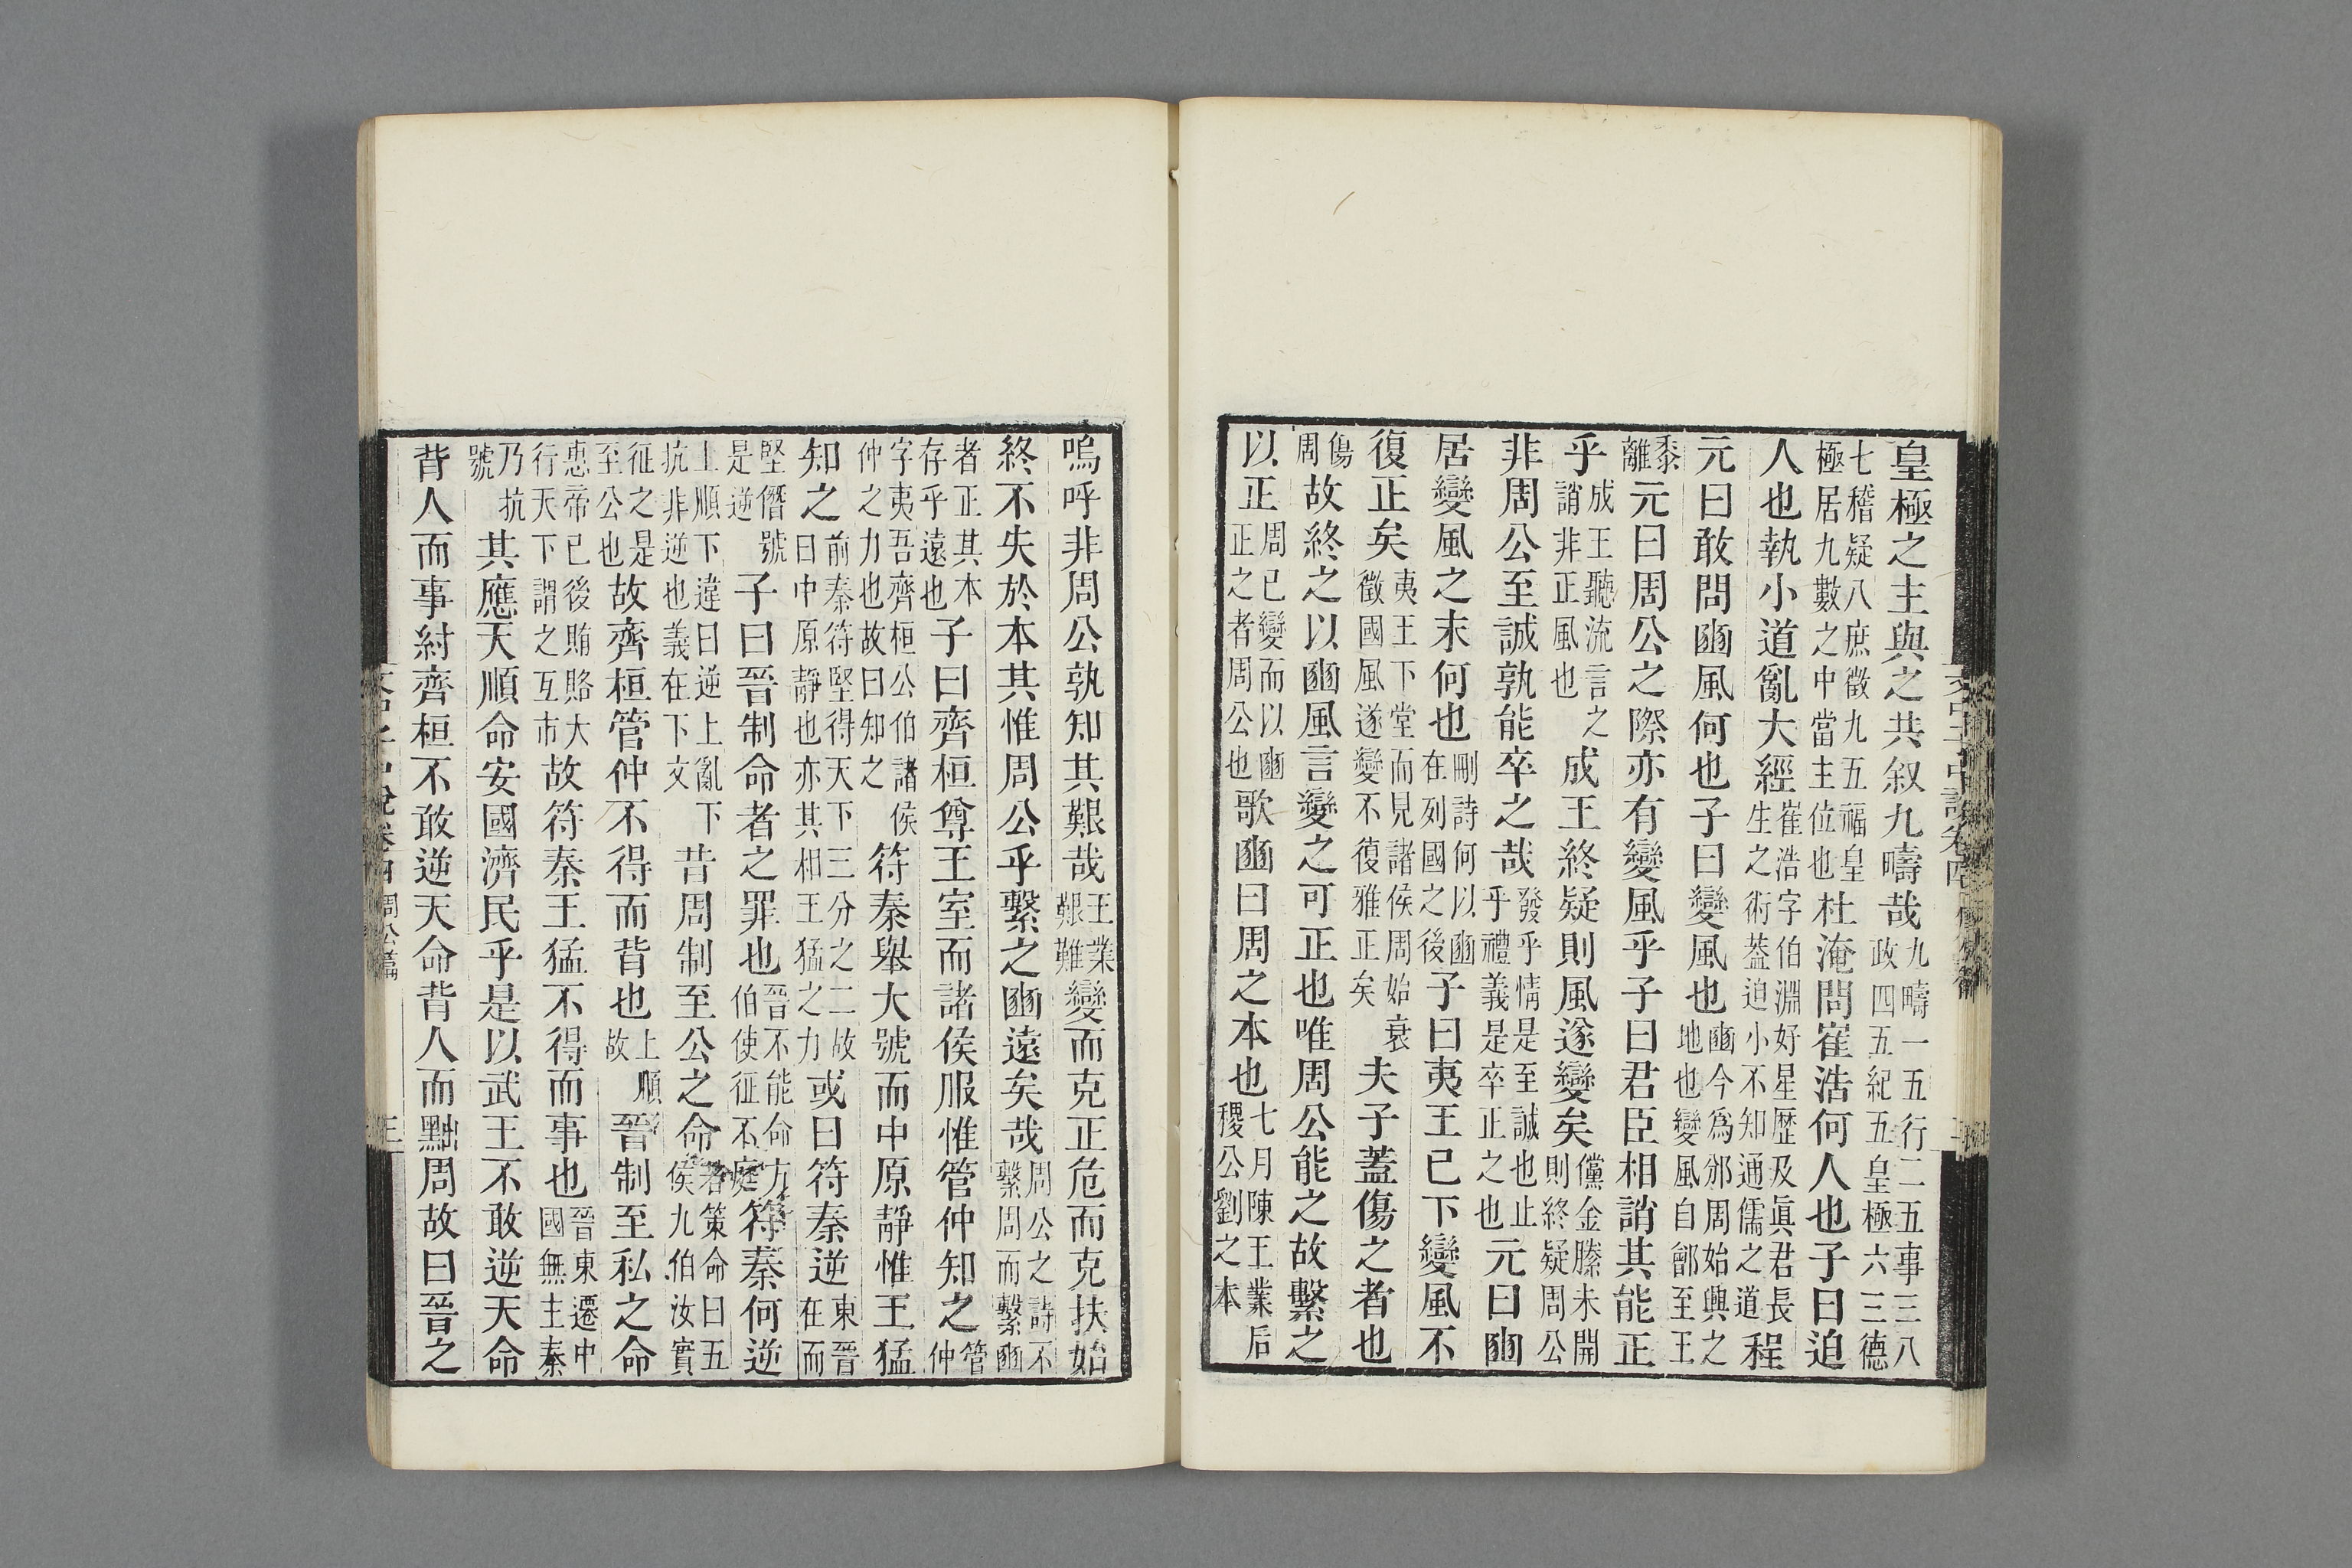 皇極之主與之共叙九疇哉九疇一五行二五事三八政四五紀五皇極六三德
七稽疑八庶徵九五福皇極居九數之中當主位也杜淹問崔浩何人也子曰迫
人也執小道亂大經崔浩字伯淵好星歷及眞君長生之術葢迫小不知通儒之道程
元曰敢問豳風何也子曰變風也豳今爲邠周始興之地也變風自鄶至王
黍離元曰周公之際亦有變風乎子曰君臣相誚其能正
乎成王聽流言之誚非正風也成王終疑則風遂變矣儻金縢未開則終疑周公
非周公至誠孰能卒之哉發乎情是至誠也止乎禮義是卒正之也元曰豳
居變風之末何也刪詩何以豳在列國之後子曰夷王已下變風不
復正矣夷王下堂而見諸侯周始衰徵國風遂變不復雅正矣夫子蓋傷之者也
傷周故終之以豳風言變之可正也唯周公能之故繫之
以正周已變而以豳正之者周公也歌豳曰周之本也七月陳王業后稷公劉之本
嗚呼非周公孰知其艱哉王業艱難變而克正危而克扶始
終不失於本其惟周公乎繫之豳遠矣哉周公之詩不繫周而繫豳
者正其本存乎遠也子曰齊桓尊王室而諸侯服惟管仲知之管仲
字夷吾齊桓公伯諸侯仲之力也故曰知之符秦舉大號而中原靜惟王猛
知之前秦符堅得天下三分之二故曰中原靜也亦其相王猛之力或曰符秦逆東晉在而
堅僭號是逆子曰晉制命者之罪也晉不能命方伯使征不庭符秦何逆
上順下違曰逆上亂下抗非逆也義在下文昔周制至公之命若策命曰五侯九伯汝實
征之是至公也故齊桓管仲不得而背也上順故晉制至私之命
惠帝已後賄賂大行天下謂之互市故符秦王猛不得而事也晉東遷中國無主秦
乃抗號其應天順命安國濟民乎是以武王不敢逆天命
背人而事紂齊桓不敢逆天命背人而黜周故曰晉之
文中子中說卷四 周公篇 三